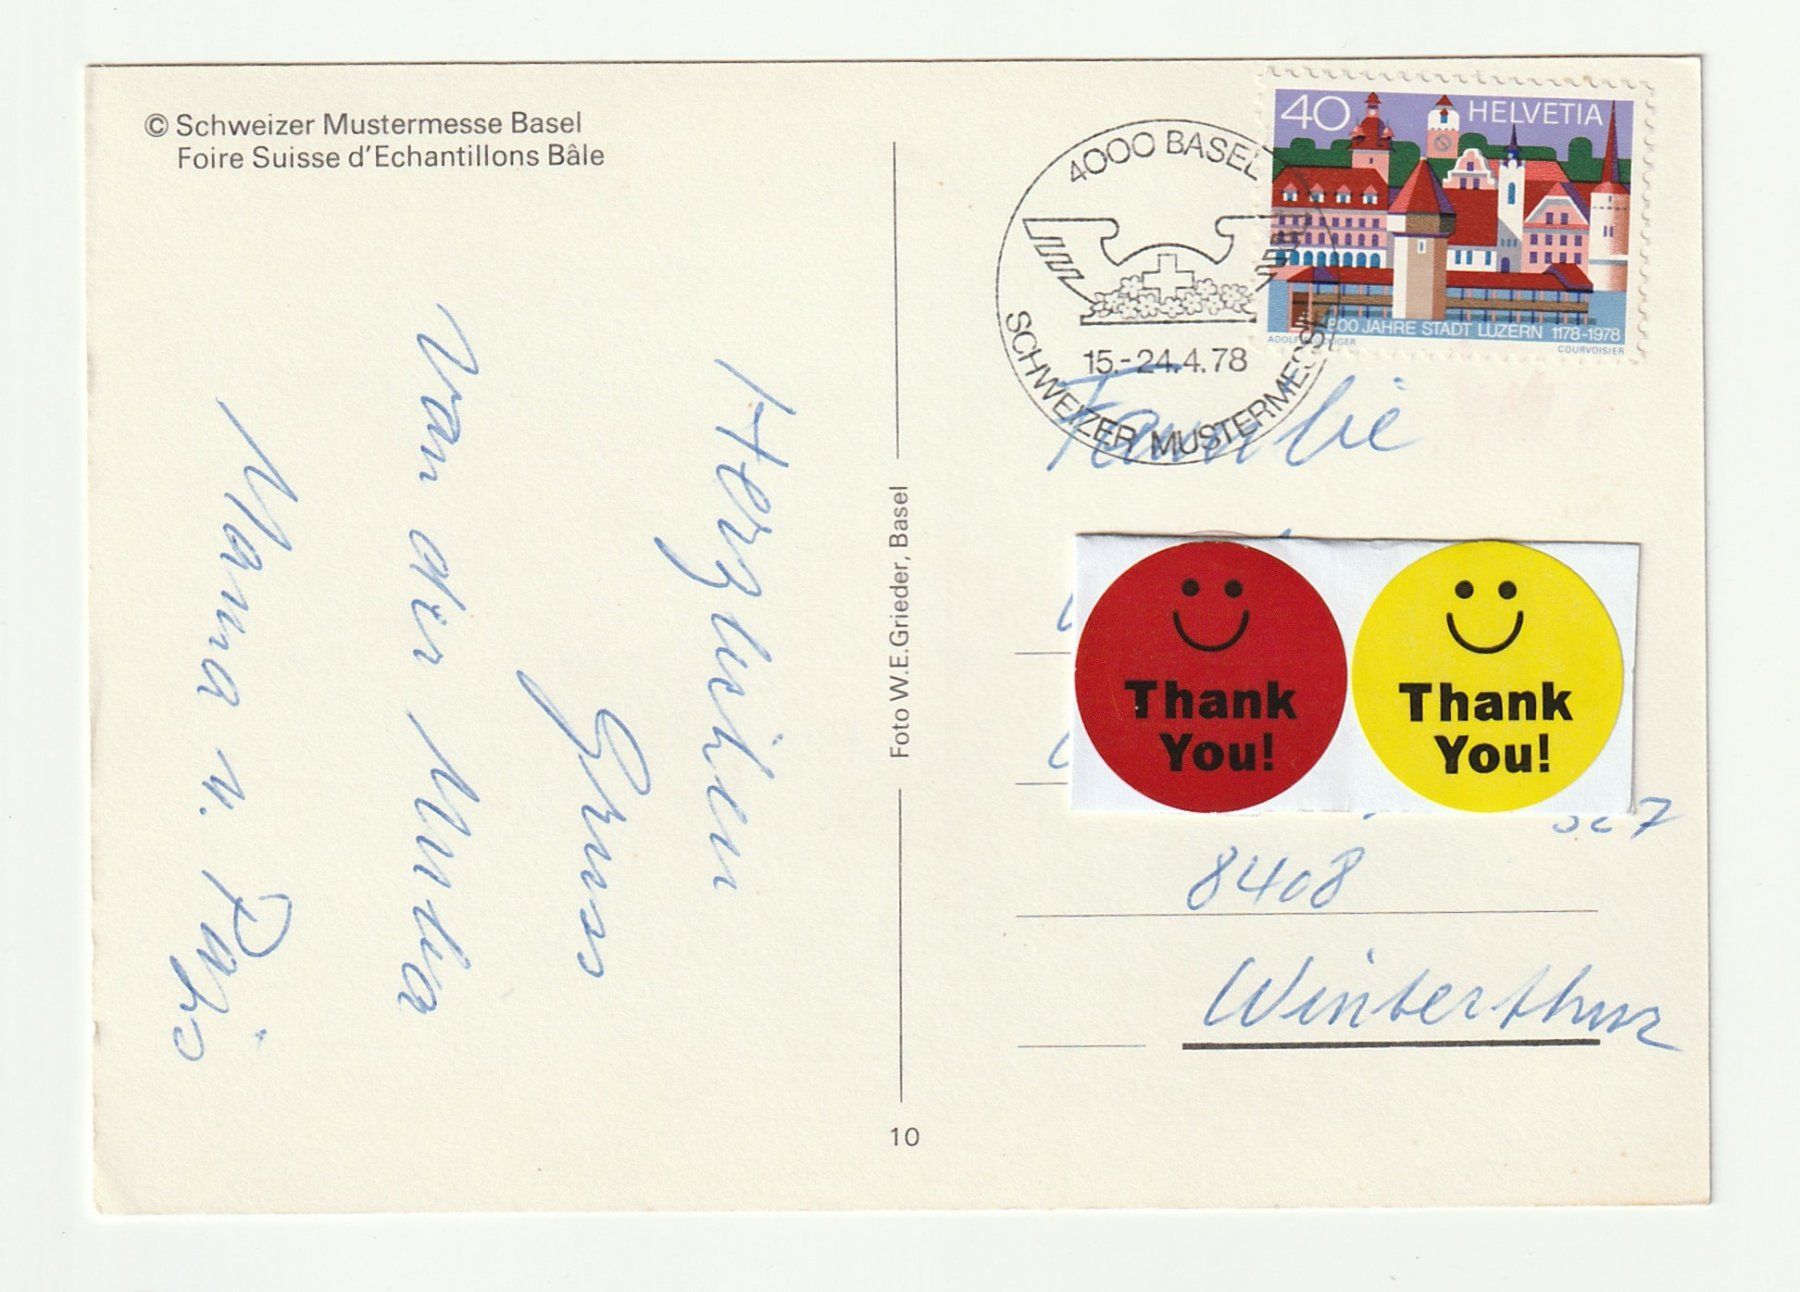 © Schweizer Mustermesse Basel
Foire Suisse d'Echantillons Bâle
Herzlichen
Gruss
von der Muba
Mama u. Papi
Foto W.E.Grieder, Basel
10
4000 BASEL
15.-24.4.78
SCHWEIZER MUSTERMESSE
40 HELVETIA
800 JAHRE STADT LUZERN 1178-1978
COURVOISIER
Familie
Thank
You!
Thank
You!
327
8408
Winterthur